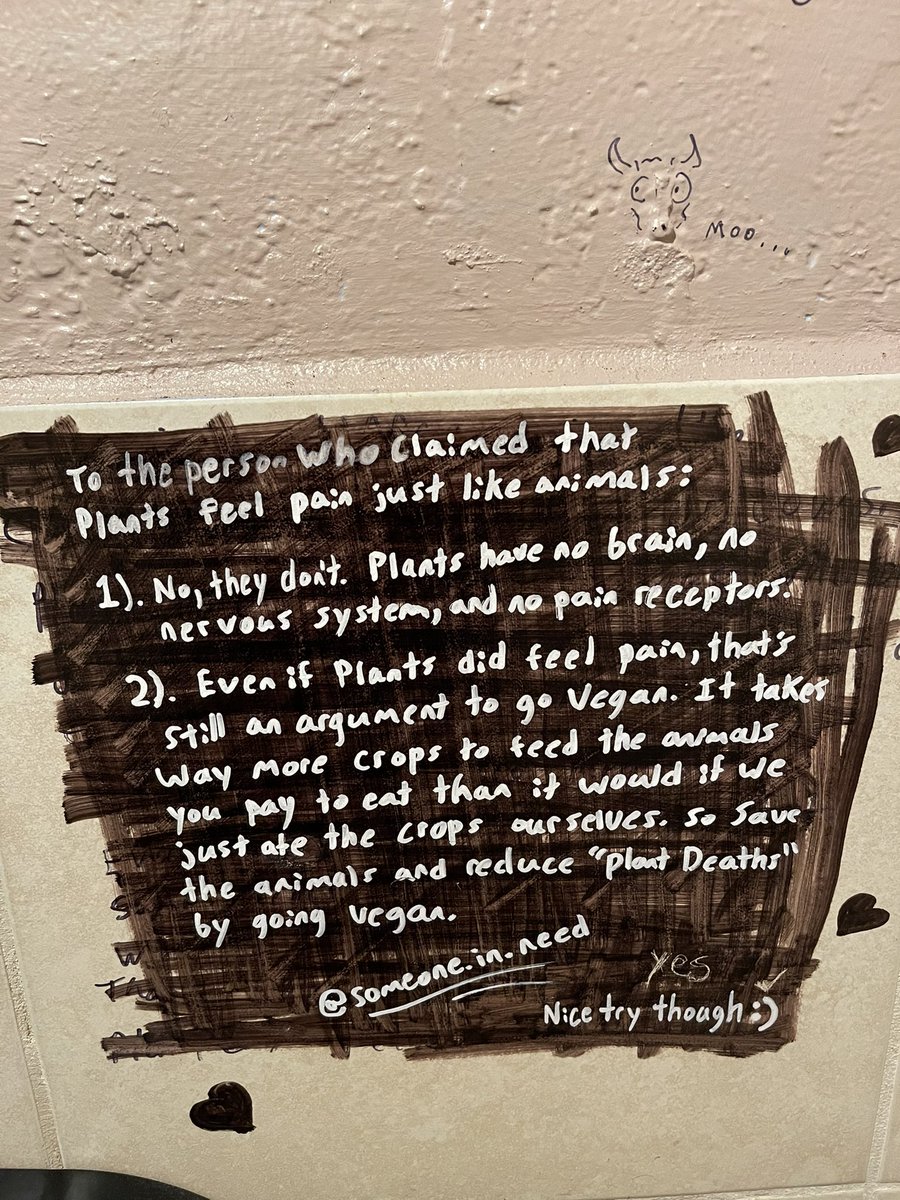 Moo...
To the person who claimed that
Plants feel pain just like animals:
1). No, they don't. Plants have no brain, no
nervous system, and no pain receptors.
2). Even if Plants did feel pain, that's
still an argument to go Vegan. It takes
way more crops to feed the animals
you pay to eat than it would if we
just ate the crops ourselves. So Save
the animals and reduce "plant Deaths"
by going vegan.
@someone.in.need
yes
Nice try though :)